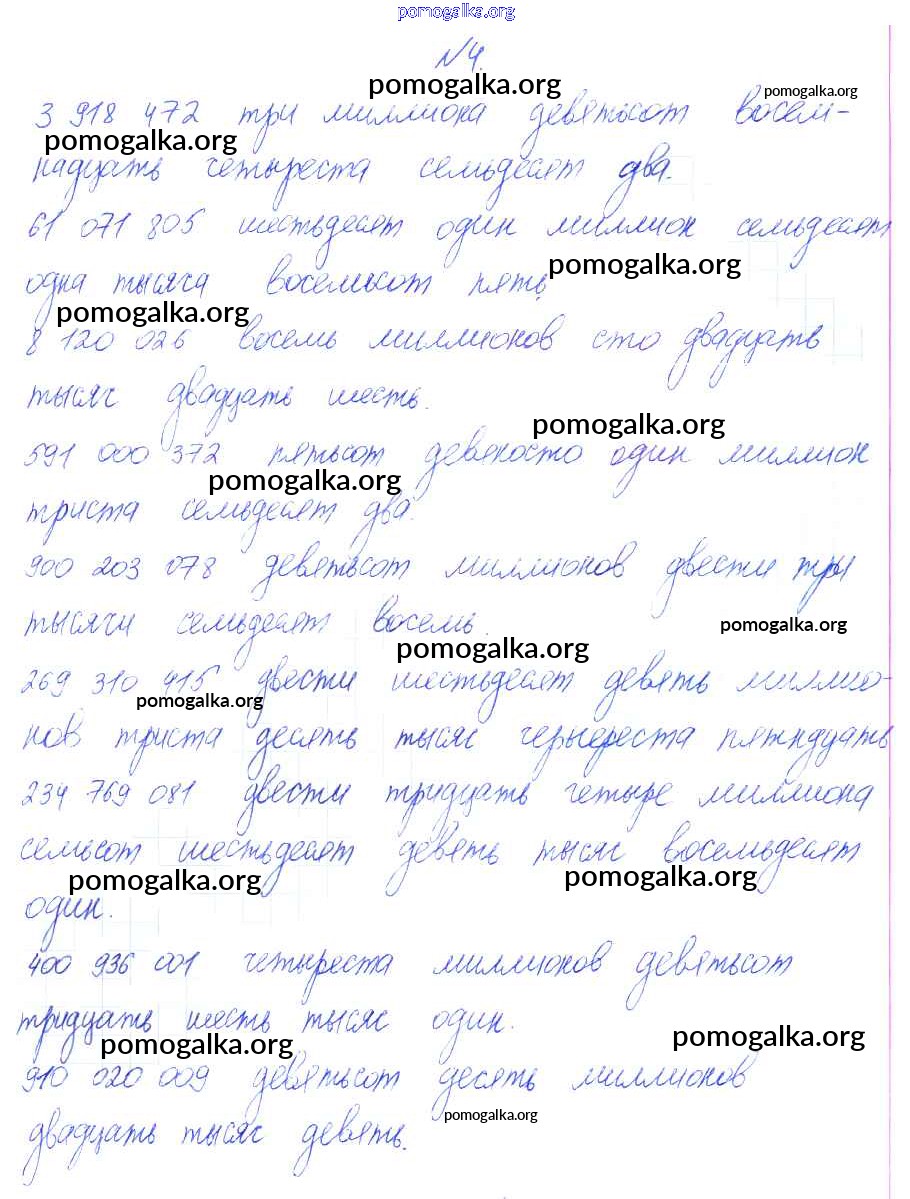 pomogalka.org
№4.
pomogalka.org
pomogalka.org
3 918 472 три миллиона девятьсот восем-
pomogalka.org
надцать четыреста семьдесят два.
61 071 805 шестьдесят один миллион семьдесят
pomogalka.org
одна тысяча восемьсот пять
pomogalka.org
8 120 026 восемь миллионов сто двадцать
тысяч двадцать шесть.
pomogalka.org
591 000 372 пятьсот девяносто один миллион
pomogalka.org
триста семьдесят два.
900 203 078 девятьсот миллионов двести три
тысячи семьдесят восемь.
pomogalka.org
pomogalka.org
269 310 415 двести шестьдесят девять миллио-
pomogalka.org
нов триста десять тысяч черыереста пятндцать
234 769 081 двести тридцать четыре миллиона
семьсот шестьдесят девять тысяч восемьдесят
pomogalka.org
pomogalka.org
один.
400 936 001 четыреста миллионов девятьсот
тридцать шесть тысяч один.
pomogalka.org
pomogalka.org
910 020 009 девятьсот десять миллионов
pomogalka.org
двадцать тысяч девять.